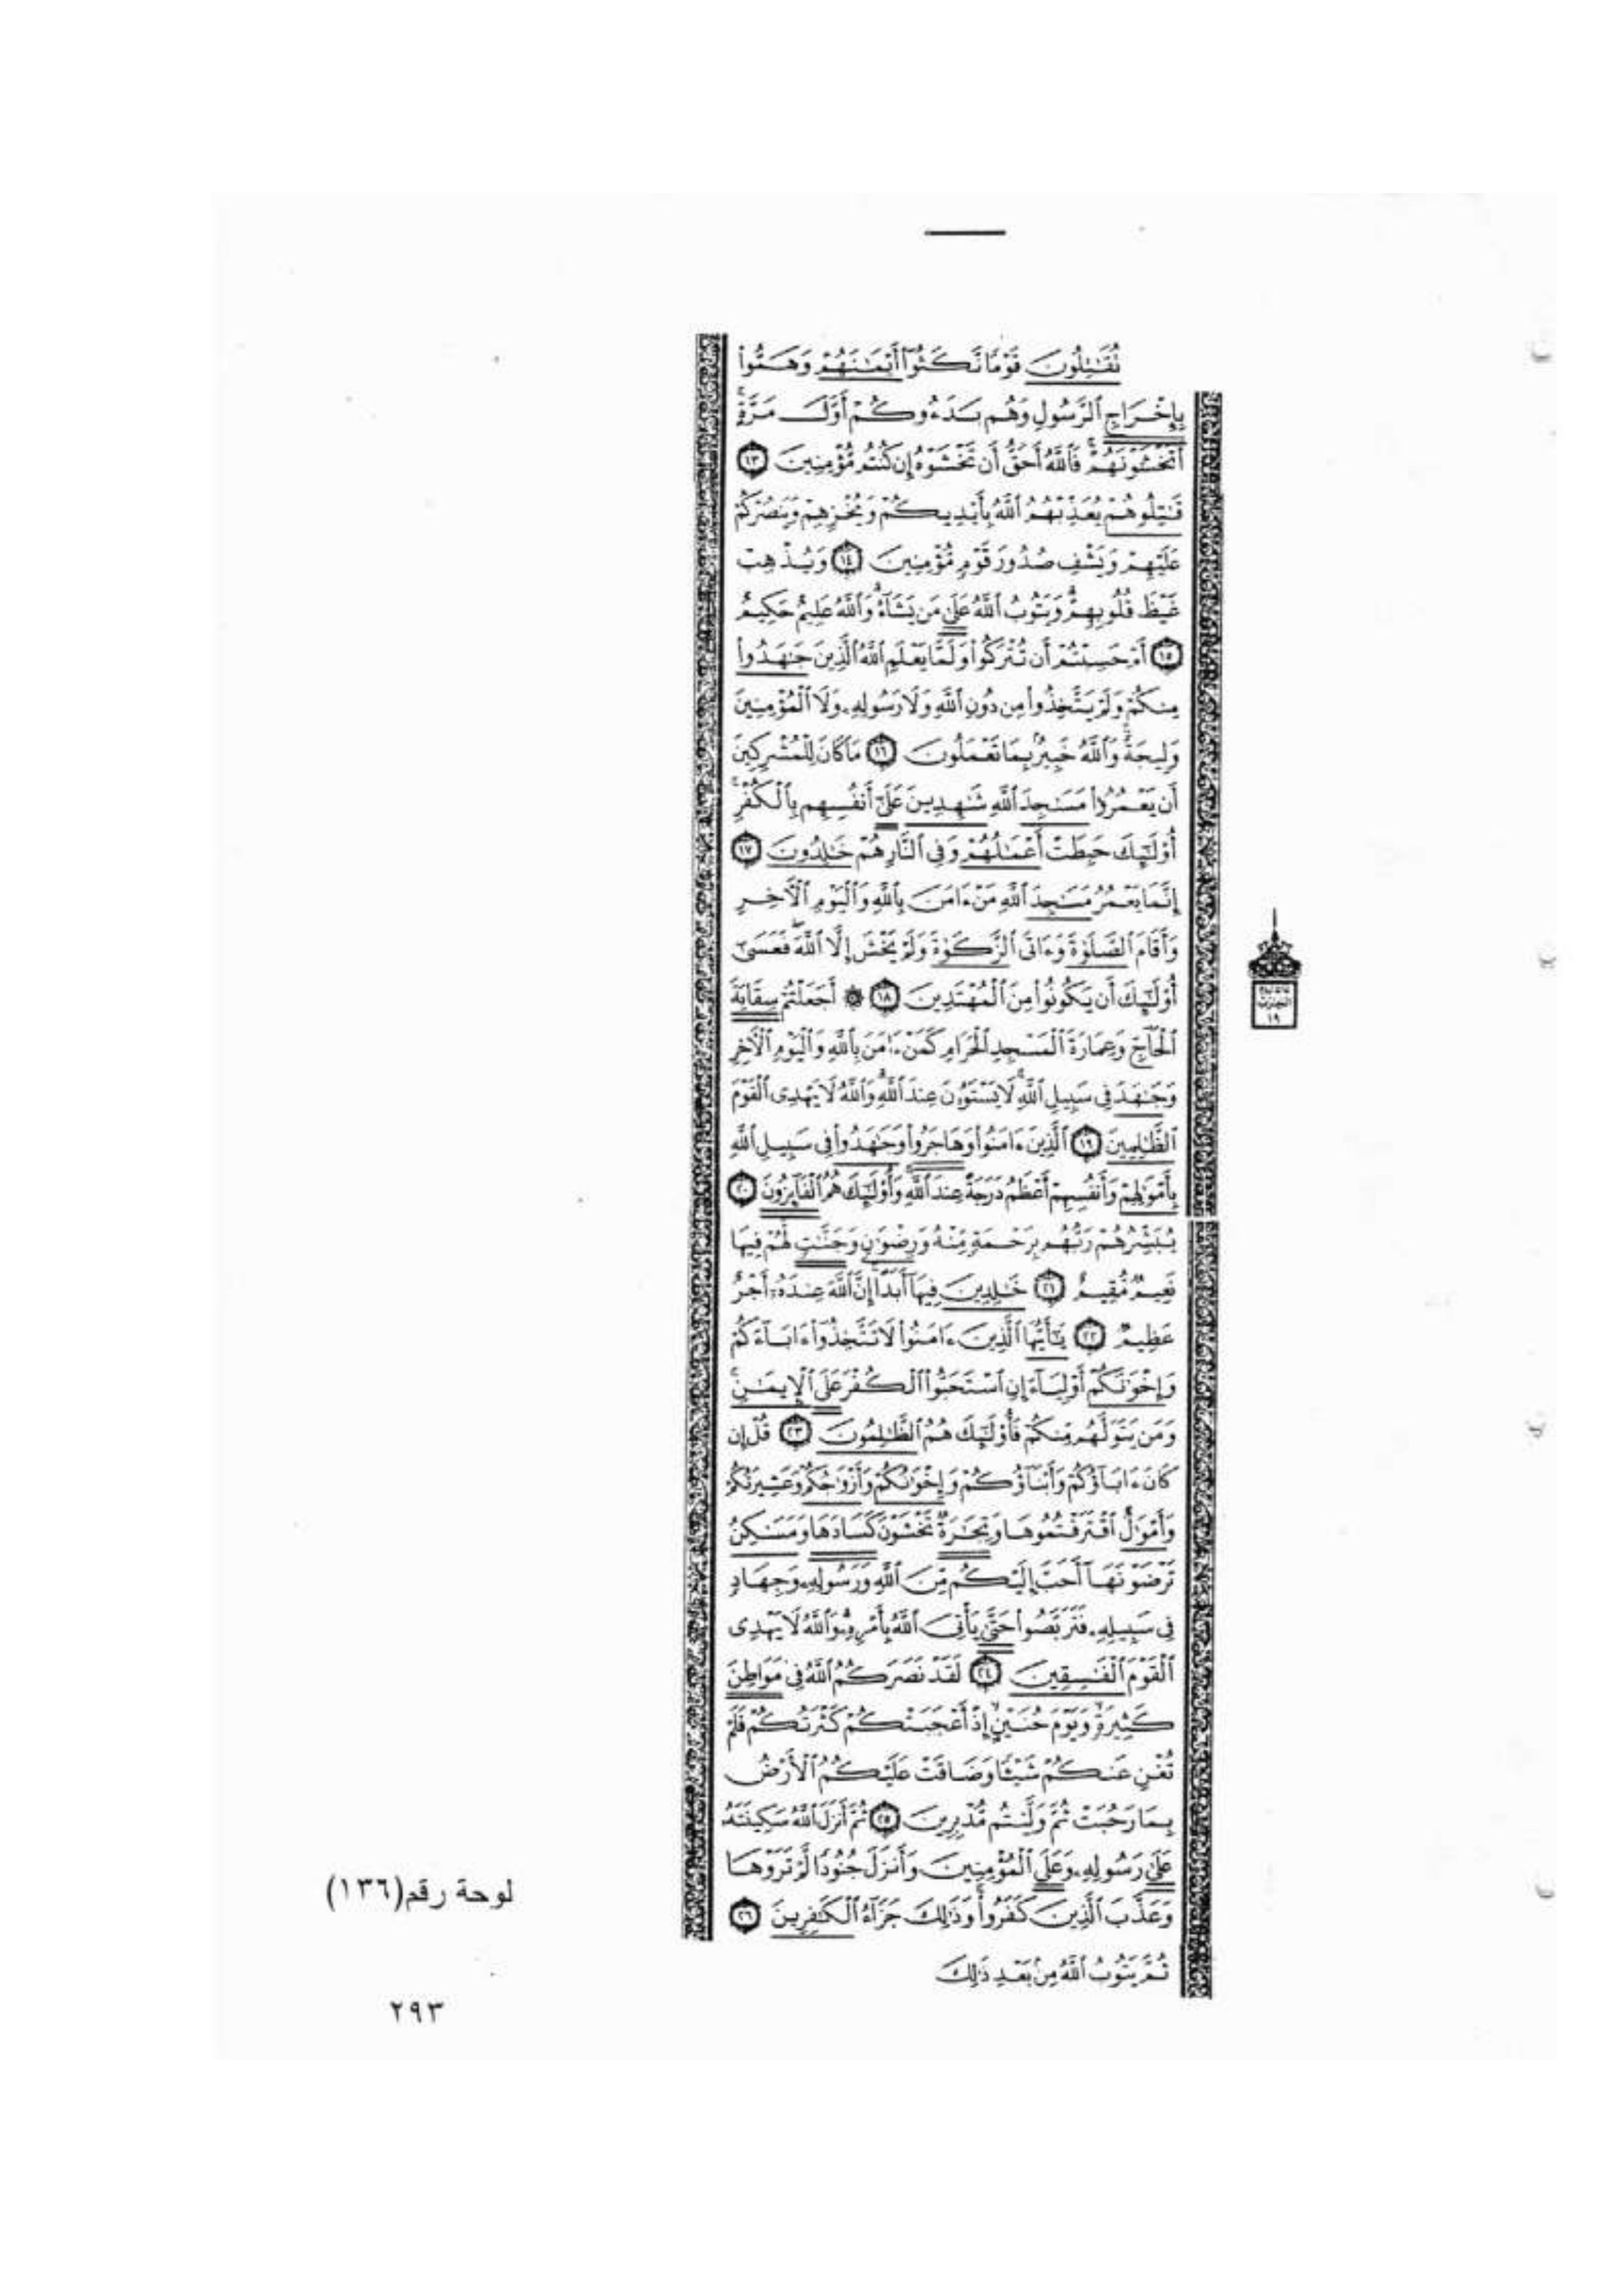 تُقَٰتِلُونَ قَوْمًا نَّكَثُوٓا۟ أَيْمَٰنَهُمْ وَهَمُّوا۟
بِإِخْرَاجِ ٱلرَّسُولِ وَهُم بَدَءُوكُمْ أَوَّلَ مَرَّةٍ ۚ
أَتَخْشَوْنَهُمْ ۚ فَٱللَّهُ أَحَقُّ أَن تَخْشَوْهُ إِن كُنتُم مُّؤْمِنِينَ ١٣
قَٰتِلُوهُمْ يُعَذِّبْهُمُ ٱللَّهُ بِأَيْدِيكُمْ وَيُخْزِهِمْ وَيَنصُرْكُمْ
عَلَيْهِمْ وَيَشْفِ صُدُورَ قَوْمٍ مُّؤْمِنِينَ ١٤ وَيُذْهِبْ
غَيْظَ قُلُوبِهِمْ ۗ وَيَتُوبُ ٱللَّهُ عَلَىٰ مَن يَشَآءُ ۗ وَٱللَّهُ عَلِيمٌ حَكِيمٌ
١٥ أَمْ حَسِبْتُمْ أَن تُتْرَكُوا۟ وَلَمَّا يَعْلَمِ ٱللَّهُ ٱلَّذِينَ جَٰهَدُوا۟
مِنكُمْ وَلَمْ يَتَّخِذُوا۟ مِن دُونِ ٱللَّهِ وَلَا رَسُولِهِۦ وَلَا ٱلْمُؤْمِنِينَ
وَلِيجَةً ۚ وَٱللَّهُ خَبِيرٌۢ بِمَا تَعْمَلُونَ ١٦ مَا كَانَ لِلْمُشْرِكِينَ
أَن يَعْمُرُوا۟ مَسَٰجِدَ ٱللَّهِ شَٰهِدِينَ عَلَىٰٓ أَنفُسِهِم بِٱلْكُفْرِ ۚ
أُو۟لَٰٓئِكَ حَبِطَتْ أَعْمَٰلُهُمْ وَفِى ٱلنَّارِ هُمْ خَٰلِدُونَ ١٧
إِنَّمَا يَعْمُرُ مَسَٰجِدَ ٱللَّهِ مَنْ ءَامَنَ بِٱللَّهِ وَٱلْيَوْمِ ٱلْءَاخِرِ
وَأَقَامَ ٱلصَّلَوٰةَ وَءَاتَى ٱلزَّكَوٰةَ وَلَمْ يَخْشَ إِلَّا ٱللَّهَ ۖ فَعَسَىٰٓ
أُو۟لَٰٓئِكَ أَن يَكُونُوا۟ مِنَ ٱلْمُهْتَدِينَ ١٨ ۞ أَجَعَلْتُمْ سِقَايَةَ
ٱلْحَآجِّ وَعِمَارَةَ ٱلْمَسْجِدِ ٱلْحَرَامِ كَمَنْ ءَامَنَ بِٱللَّهِ وَٱلْيَوْمِ ٱلْءَاخِرِ
وَجَٰهَدَ فِى سَبِيلِ ٱللَّهِ ۚ لَا يَسْتَوُۥنَ عِندَ ٱللَّهِ ۗ وَٱللَّهُ لَا يَهْدِى ٱلْقَوْمَ
ٱلظَّٰلِمِينَ ١٩ ٱلَّذِينَ ءَامَنُوا۟ وَهَاجَرُوا۟ وَجَٰهَدُوا۟ فِى سَبِيلِ ٱللَّهِ
بِأَمْوَٰلِهِمْ وَأَنفُسِهِمْ أَعْظَمُ دَرَجَةً عِندَ ٱللَّهِ ۚ وَأُو۟لَٰٓئِكَ هُمُ ٱلْفَآئِزُونَ ٢٠
يُبَشِّرُهُمْ رَبُّهُم بِرَحْمَةٍ مِّنْهُ وَرِضْوَٰنٍ وَجَنَّٰتٍ لَّهُمْ فِيهَا
نَعِيمٌ مُّقِيمٌ ٢١ خَٰلِدِينَ فِيهَآ أَبَدًا ۚ إِنَّ ٱللَّهَ عِندَهُۥٓ أَجْرٌ
عَظِيمٌ ٢٢ يَٰٓأَيُّهَا ٱلَّذِينَ ءَامَنُوا۟ لَا تَتَّخِذُوٓا۟ ءَابَآءَكُمْ
وَإِخْوَٰنَكُمْ أَوْلِيَآءَ إِنِ ٱسْتَحَبُّوا۟ ٱلْكُفْرَ عَلَى ٱلْإِيمَٰنِ ۚ
وَمَن يَتَوَلَّهُم مِّنكُمْ فَأُو۟لَٰٓئِكَ هُمُ ٱلظَّٰلِمُونَ ٢٣ قُلْ إِن
كَانَ ءَابَآؤُكُمْ وَأَبْنَآؤُكُمْ وَإِخْوَٰنُكُمْ وَأَزْوَٰجُكُمْ وَعَشِيرَتُكُمْ
وَأَمْوَٰلٌ ٱقْتَرَفْتُمُوهَا وَتِجَٰرَةٌ تَخْشَوْنَ كَسَادَهَا وَمَسَٰكِنُ
تَرْضَوْنَهَآ أَحَبَّ إِلَيْكُم مِّنَ ٱللَّهِ وَرَسُولِهِۦ وَجِهَادٍ
فِى سَبِيلِهِۦ فَتَرَبَّصُوا۟ حَتَّىٰ يَأْتِىَ ٱللَّهُ بِأَمْرِهِۦ ۗ وَٱللَّهُ لَا يَهْدِى
ٱلْقَوْمَ ٱلْفَٰسِقِينَ ٢٤ لَقَدْ نَصَرَكُمُ ٱللَّهُ فِى مَوَاطِنَ
كَثِيرَةٍ ۙ وَيَوْمَ حُنَيْنٍ ۙ إِذْ أَعْجَبَتْكُمْ كَثْرَتُكُمْ فَلَمْ
تُغْنِ عَنكُمْ شَيْـًٔا وَضَاقَتْ عَلَيْكُمُ ٱلْأَرْضُ
بِمَا رَحُبَتْ ثُمَّ وَلَّيْتُم مُّدْبِرِينَ ٢٥ ثُمَّ أَنزَلَ ٱللَّهُ سَكِينَتَهُۥ
عَلَىٰ رَسُولِهِۦ وَعَلَى ٱلْمُؤْمِنِينَ وَأَنزَلَ جُنُودًا لَّمْ تَرَوْهَا
وَعَذَّبَ ٱلَّذِينَ كَفَرُوا۟ ۚ وَذَٰلِكَ جَزَآءُ ٱلْكَٰفِرِينَ ٢٦
ثُمَّ يَتُوبُ ٱللَّهُ مِنۢ بَعْدِ ذَٰلِكَ
١٩
لوحة رقم(١٣٦)
٢٩٣